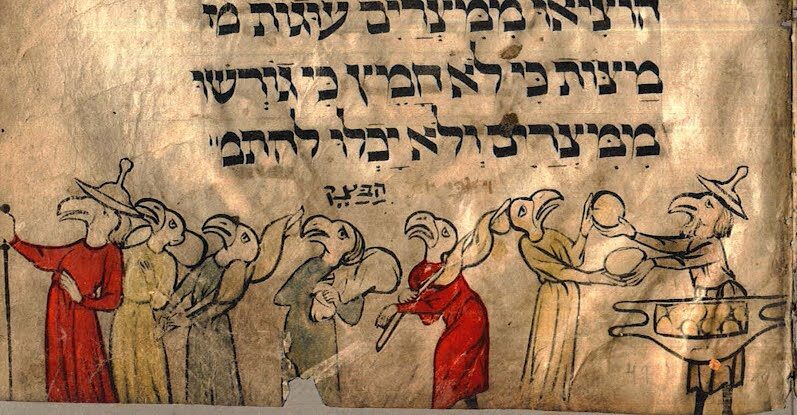 הוציאו ממיצרים עוגות מי
מיצות כי לא חמיץ כי גורשו
ממיצרים ולא יכלו להתמ'
הבצק